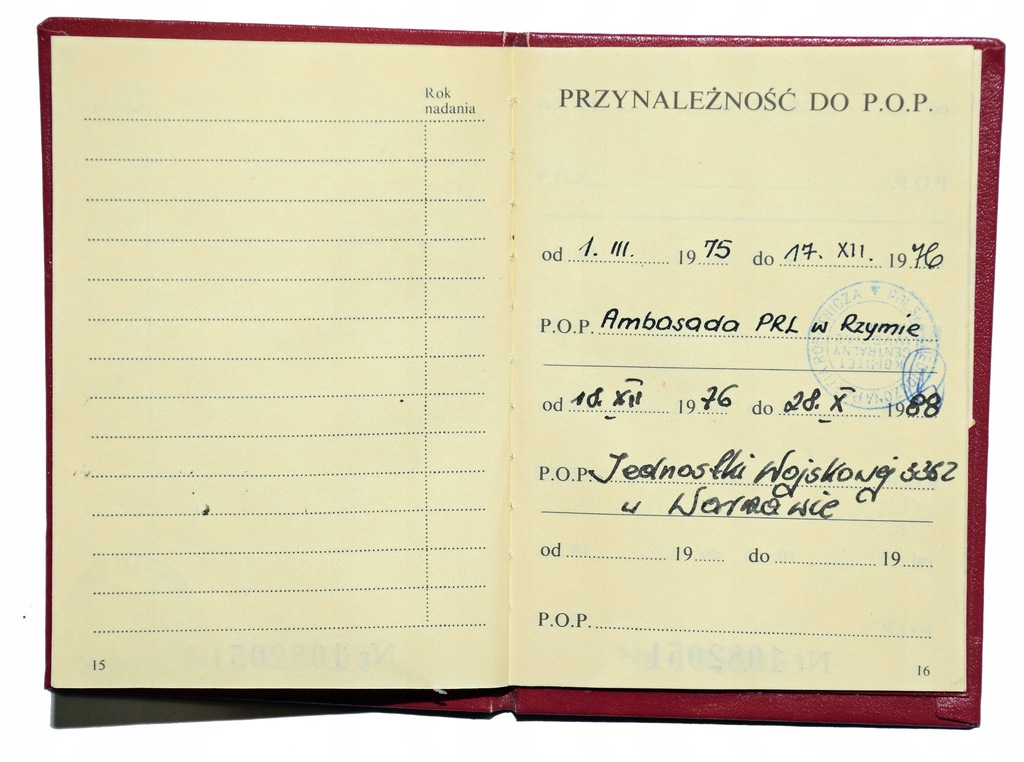 Rok
nadania
15
PRZYNALEŻNOŚĆ DO P.O.P.
od 1. III. 1975 do 17. XII. 1976
P.O.P. Ambasada PRL w Rzymie
KOMITET
CENTRALNY
od 18. XII 1976 do 28. X 1988
P.O.P. Jednostki Wojskowej 3362
w Warszawie
od 19 do 19
P.O.P.
16